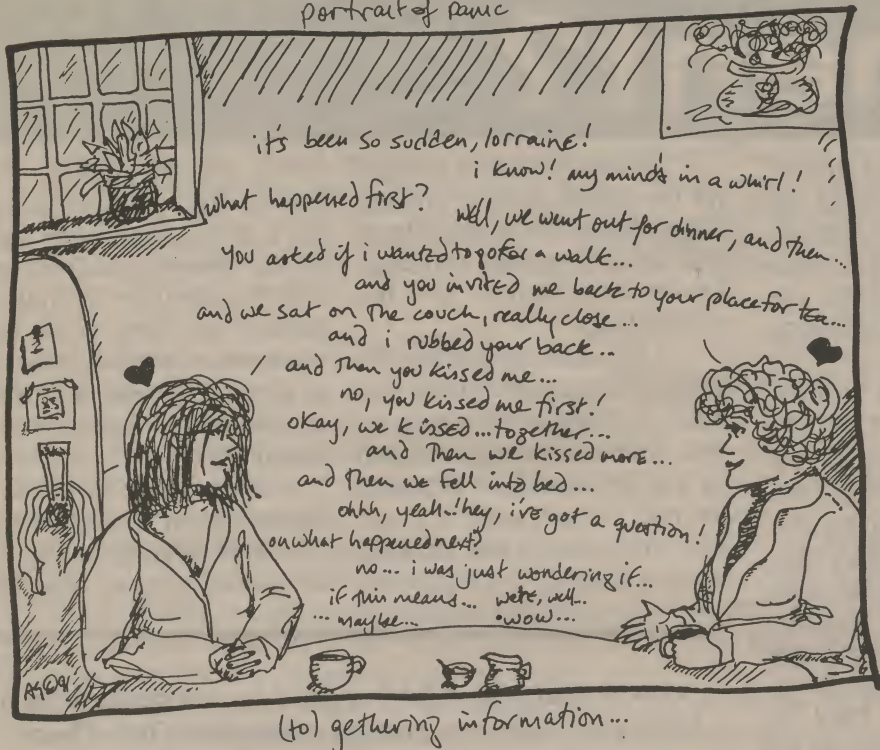 portrait of panic
it's been so sudden, lorraine!
i know! my mind's in a whirl!
what happened first?
well, we went out for dinner, and then...
you asked if i wanted to go for a walk...
and you invited me back to your place for tea...
and we sat on the couch, really close...
and i rubbed your back..
and then you kissed me...
no, you kissed me first!
okay, we kissed...together...
and then we kissed more...
and then we fell into bed...
ohhh, yeah..! hey, i've got a question!
on what happened next?
no... i was just wondering if...
if this means... we're, well..
... maybe... wow...
(to) gethering information...